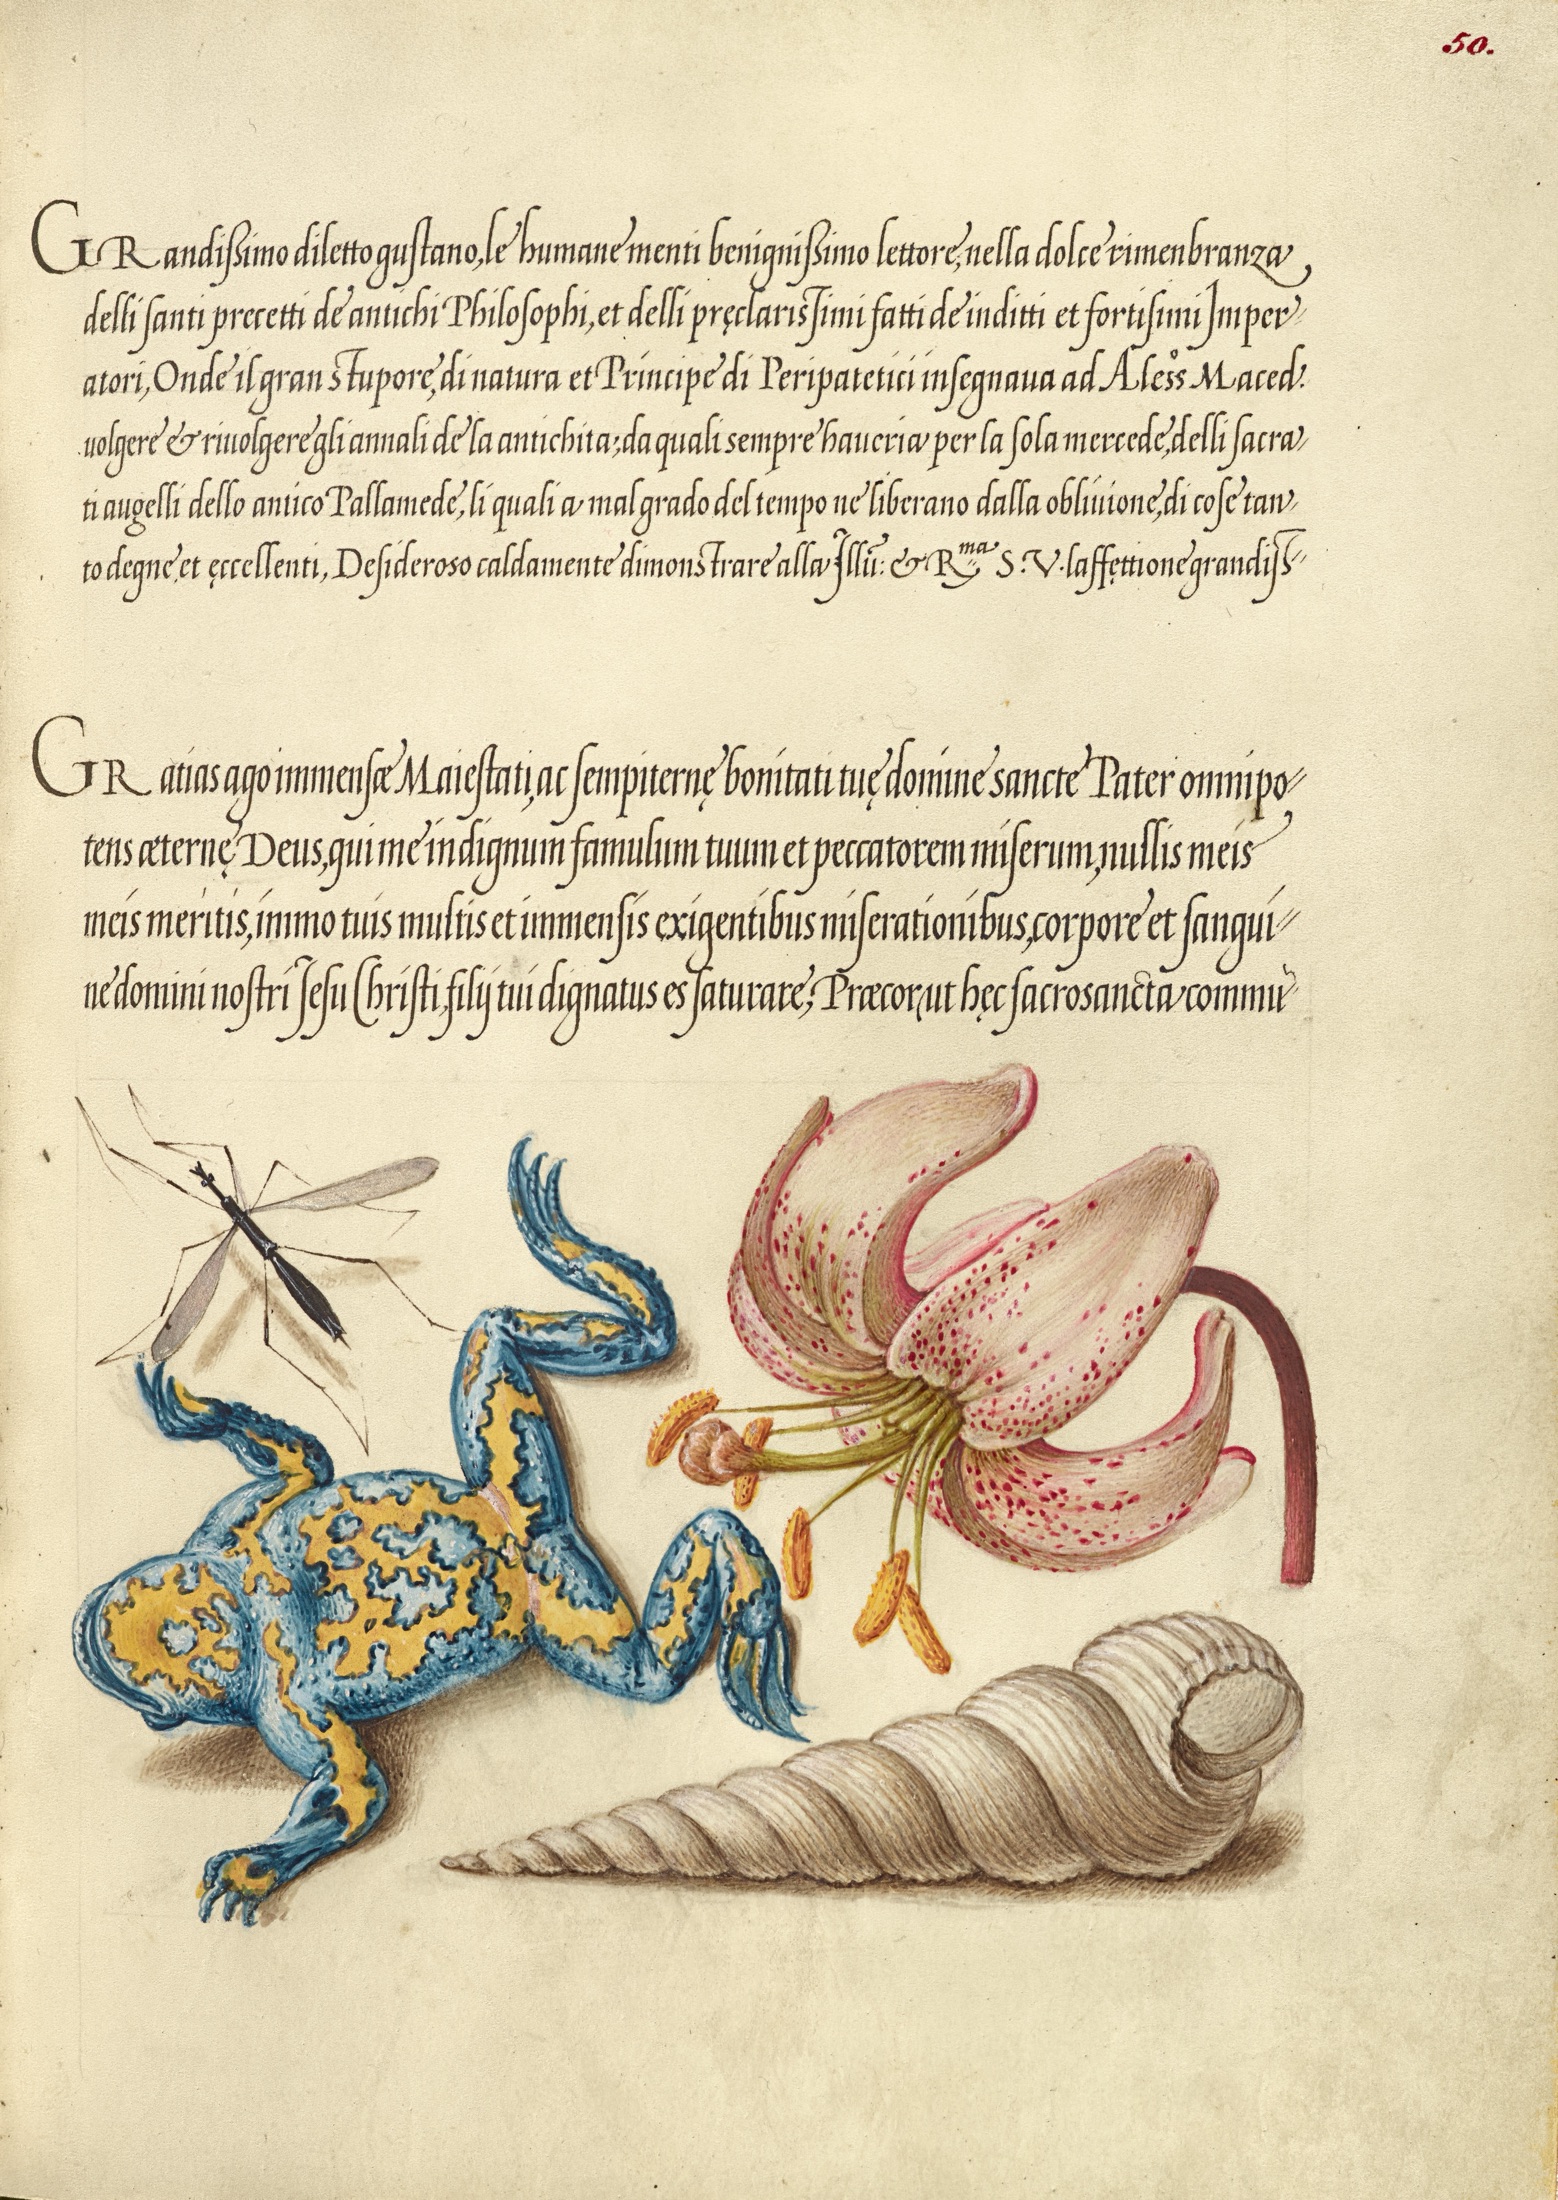 50.
GRandissimo diletto gustano, le humane menti benignissimo lettore, nella dolce rimenbranza
delli santi precetti de antichi Philosophi, et delli pręclarissimi fatti de inditti et fortisimi Imper-
atori, Onde il gran stuporę, di natura et Principe di Peripatetici insegnaua ad Alesso Maced:
volgere & riuolgere gli annali de la antichita; da quali sempre haueria per la sola mercede, delli sacra-
ti augelli dello antico Pallamede, li quali a mal grado del tempo ne liberano dalla obliuione, di cose tan-
to degne, et ęccellenti, Desideroso caldamente dimonstrare alla Illũ: & R.ma S: V. laffęttione grandiss-
GRatias ago immensæ Maiestati, ac sempiternę bonitati tuę domine sancte Pater omnipo-
tens æternę Deus, qui me indignum famulum tuum et peccatorem miserum, nullis meis
meis meritis, immo tuis multis et immensis exigentibus miserationibus, corpore et sangui-
ne domini nostri Jesu Christi, filij tui dignatus es saturare; Præcor, ut hęc sacrosancta commu-